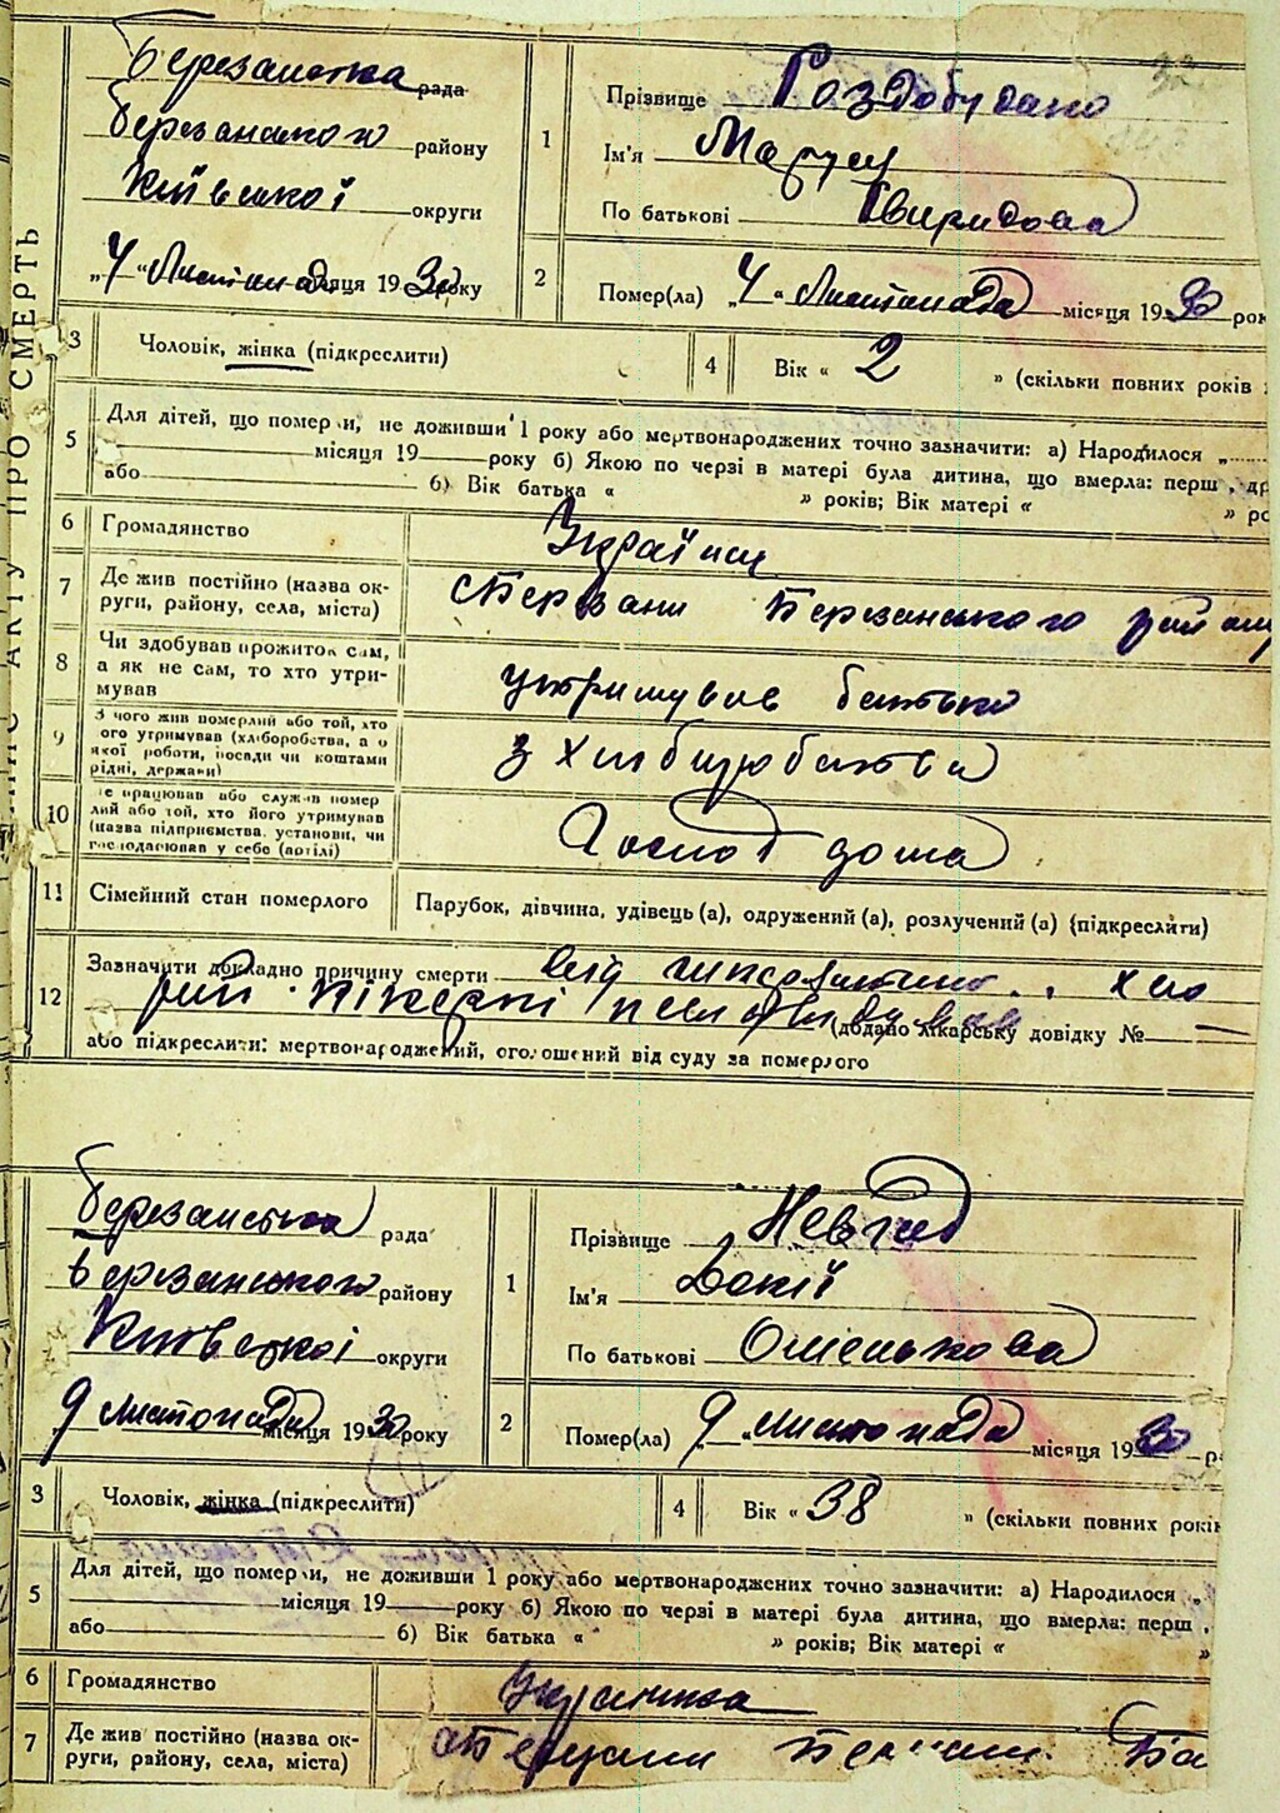 ЗАПИС АКТУ ПРО СМЕРТЬ
Березанська рада
Березанського району
Київської округи
„4“ Листопада місяця 1930 року
1
Прізвище Роздобудько
Ім'я Марус
По батькові Свиридова
2
Помер(ла) „4“ Листопада місяця 1930 рок
3
Чоловік, жінка (підкреслити)
4
Вік « 2 » (скільки повних років
5
Для дітей, що померли, не доживши 1 року або мертвонароджених точно зазначити: а) Народилося „
місяця 19 року б) Якою по черзі в матері була дитина, що вмерла: перш , др
або б) Вік батька « » років; Вік матері « » ро
6
Громадянство
7
Де жив постійно (назва округи, району, села, міста)
Березані Березанського району
8
Чи здобував прожиток сам,
а як не сам, то хто утри-
мував
утримував батько
9
З чого жив померлий або той, хто
ого утримував (хліборобства, а о
якої роботи, посади чи коштами
рідні, держави)
з хліборобства
10
Де працював або служив помер
лий або той, хто його утримував
(назва підприємства, установи, чи
господарював у себе (артілі)
Господ дома
11
Сімейний стан померлого
Парубок, дівчина, удівець (а), одружений (а), розлучений (а) (підкреслити)
12
Зазначити докладно причину смерти від
(додано лікарську довідку № —
або підкреслити: мертвонароджений, оголошений від суду за померлого
Березанська рада
Березанського району
Київської округи
9 листопада місяця 1930 року
1
Прізвище Невгад
Ім'я Докії
По батькові Омелькова
2
Помер(ла) 9 „листопада місяця 1930 р
3
Чоловік, жінка (підкреслити)
4
Вік « 38 » (скільки повних років
5
Для дітей, що померли, не доживши 1 року або мертвонароджених точно зазначити: а) Народилося „
місяця 19 року б) Якою по черзі в матері була дитина, що вмерла: перш ,
або б) Вік батька « » років; Вік матері « »
6
Громадянство
Українка
7
Де жив постійно (назва ок-
руги, району, села, міста)